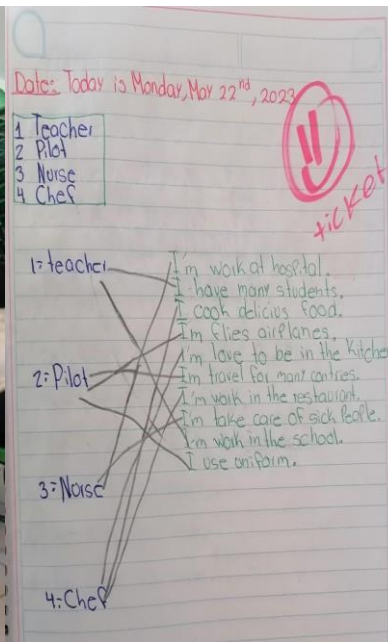 Date: Today is Monday, May 22nd, 2023
1 Teacher
2 Pilot
3 Nurse
4 Chef
ticket
1=teacher
I'm work at hospital.
I have many students.
I cook delicius food.
Im flies airplanes.
I'm love to be in the Kitchen
2=Pilot
Im travel for many contries.
I'm work in the restaurant.
I'm take care of sick People.
I'm work in the school.
I use uniform.
3=Norse
4=Chef